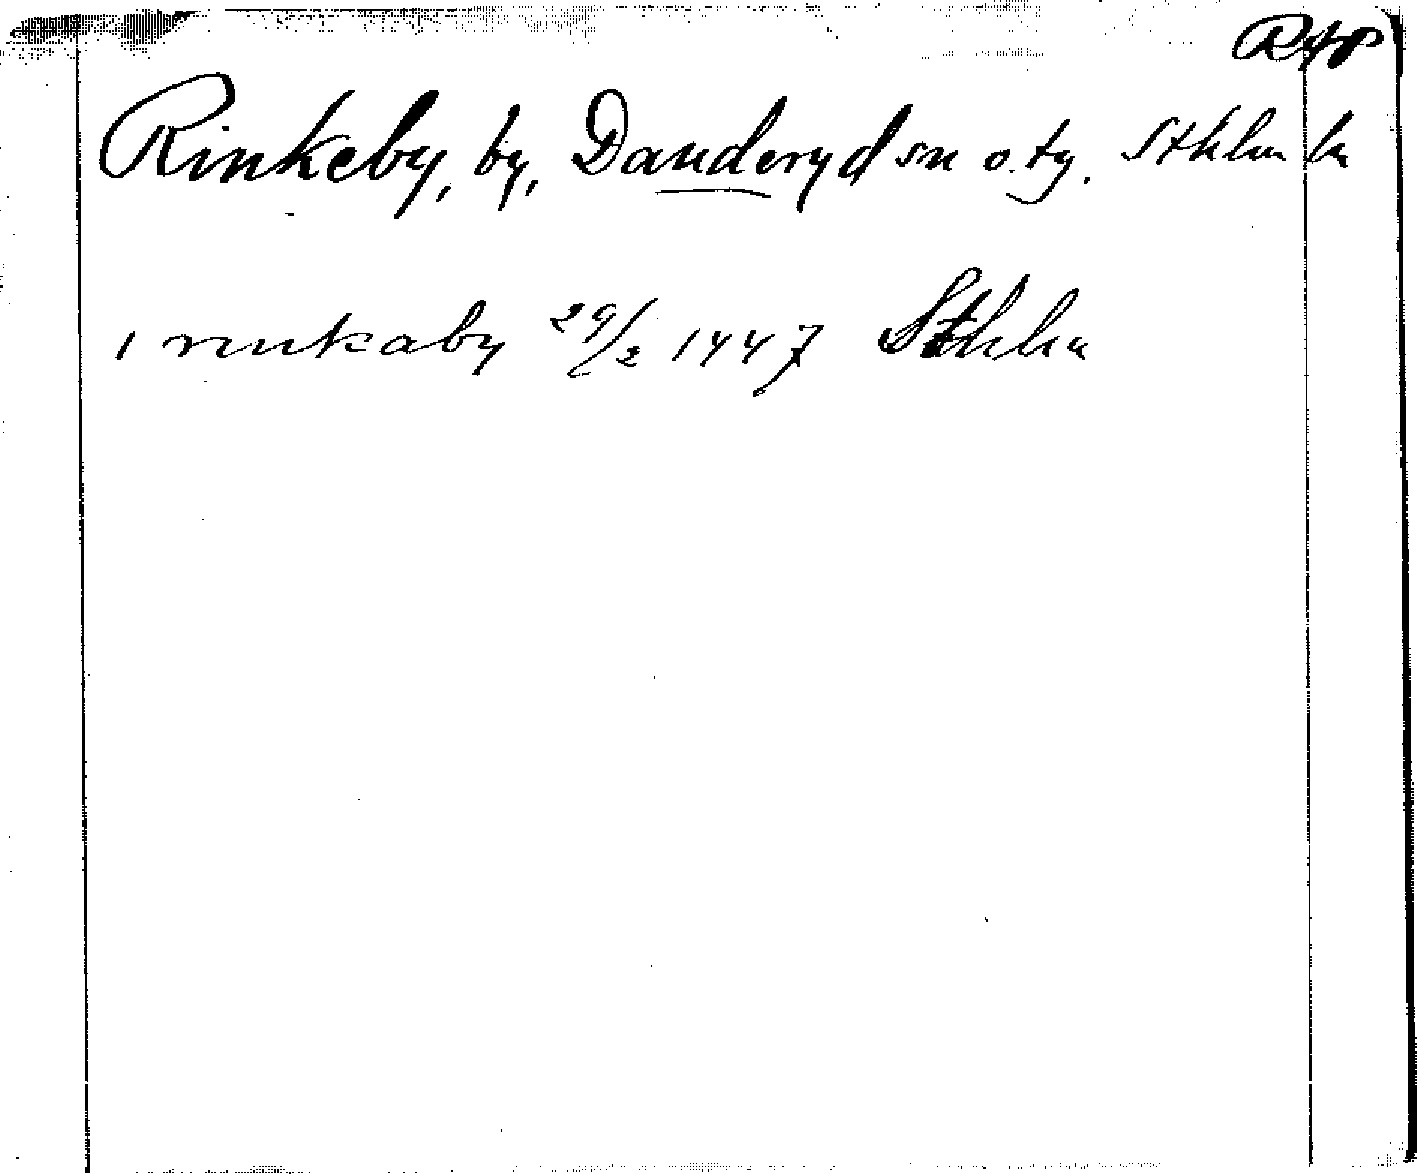 Rap
Rinkeby, by, Danderyd sn o. tg. Sthlm ln
i rinkaby 29/2 1447 Sthlm